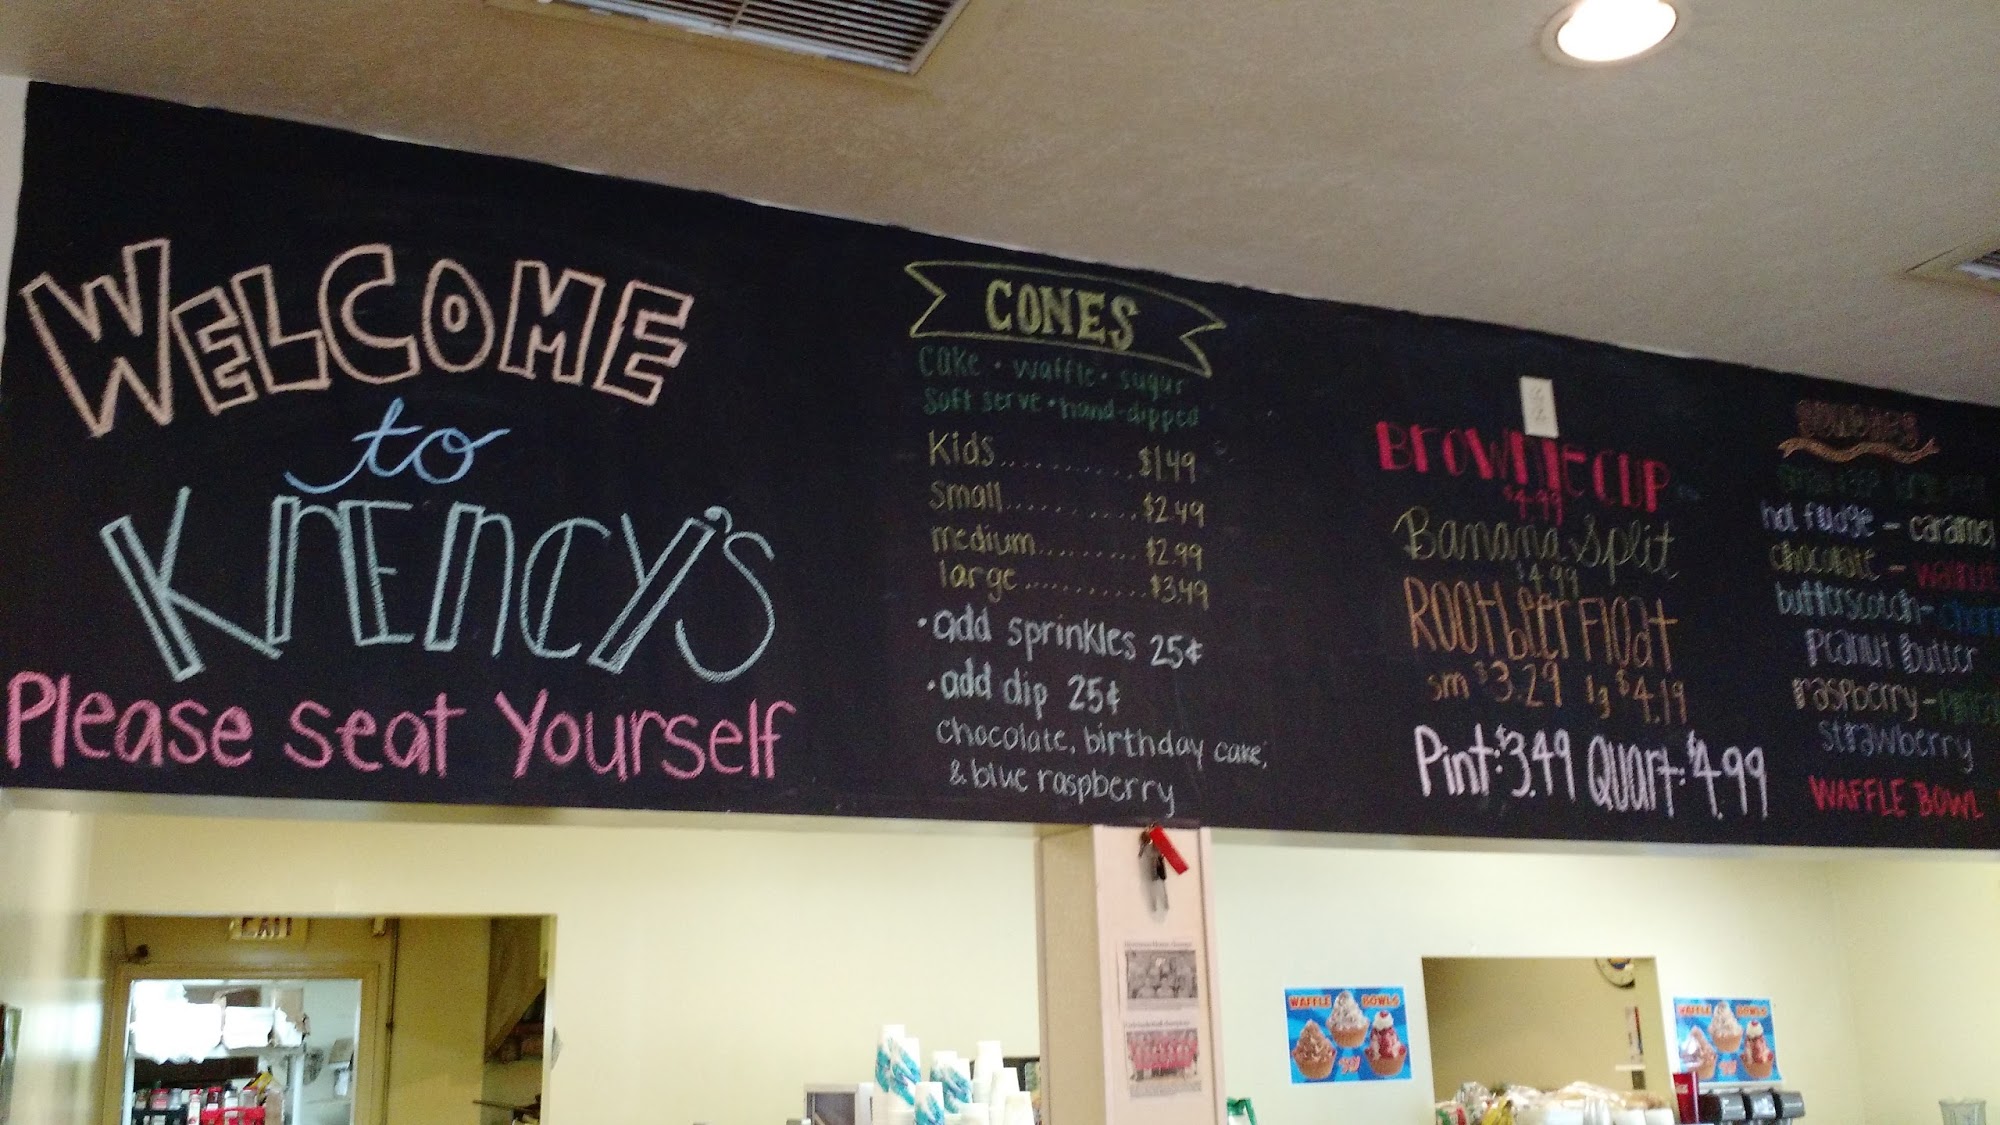 WELCOME
to
KRENCY'S
Please seat Yourself
CONES
cake • waffle • sugar
soft serve • hand-dipped
Kids............$1.49
small............$2.49
medium..........$2.99
large...........$3.49
• add sprinkles 25¢
• add dip 25¢
chocolate, birthday cake,
& blue raspberry
BROWNIE CUP
$4.99
Banana Split
$4.99
ROOTbEEr FlOaT
sm $3.29 lg $4.19
Pint: $3.49 Quart: $4.99
SUNDAES
hot fudge - caramel
chocolate - walnut
butterscotch-
PEanut Butter
raspberry -
strawberry
WAFFLE BOWL
EXIT
WAFFLE BOWLS
WAFFLE BOWLS